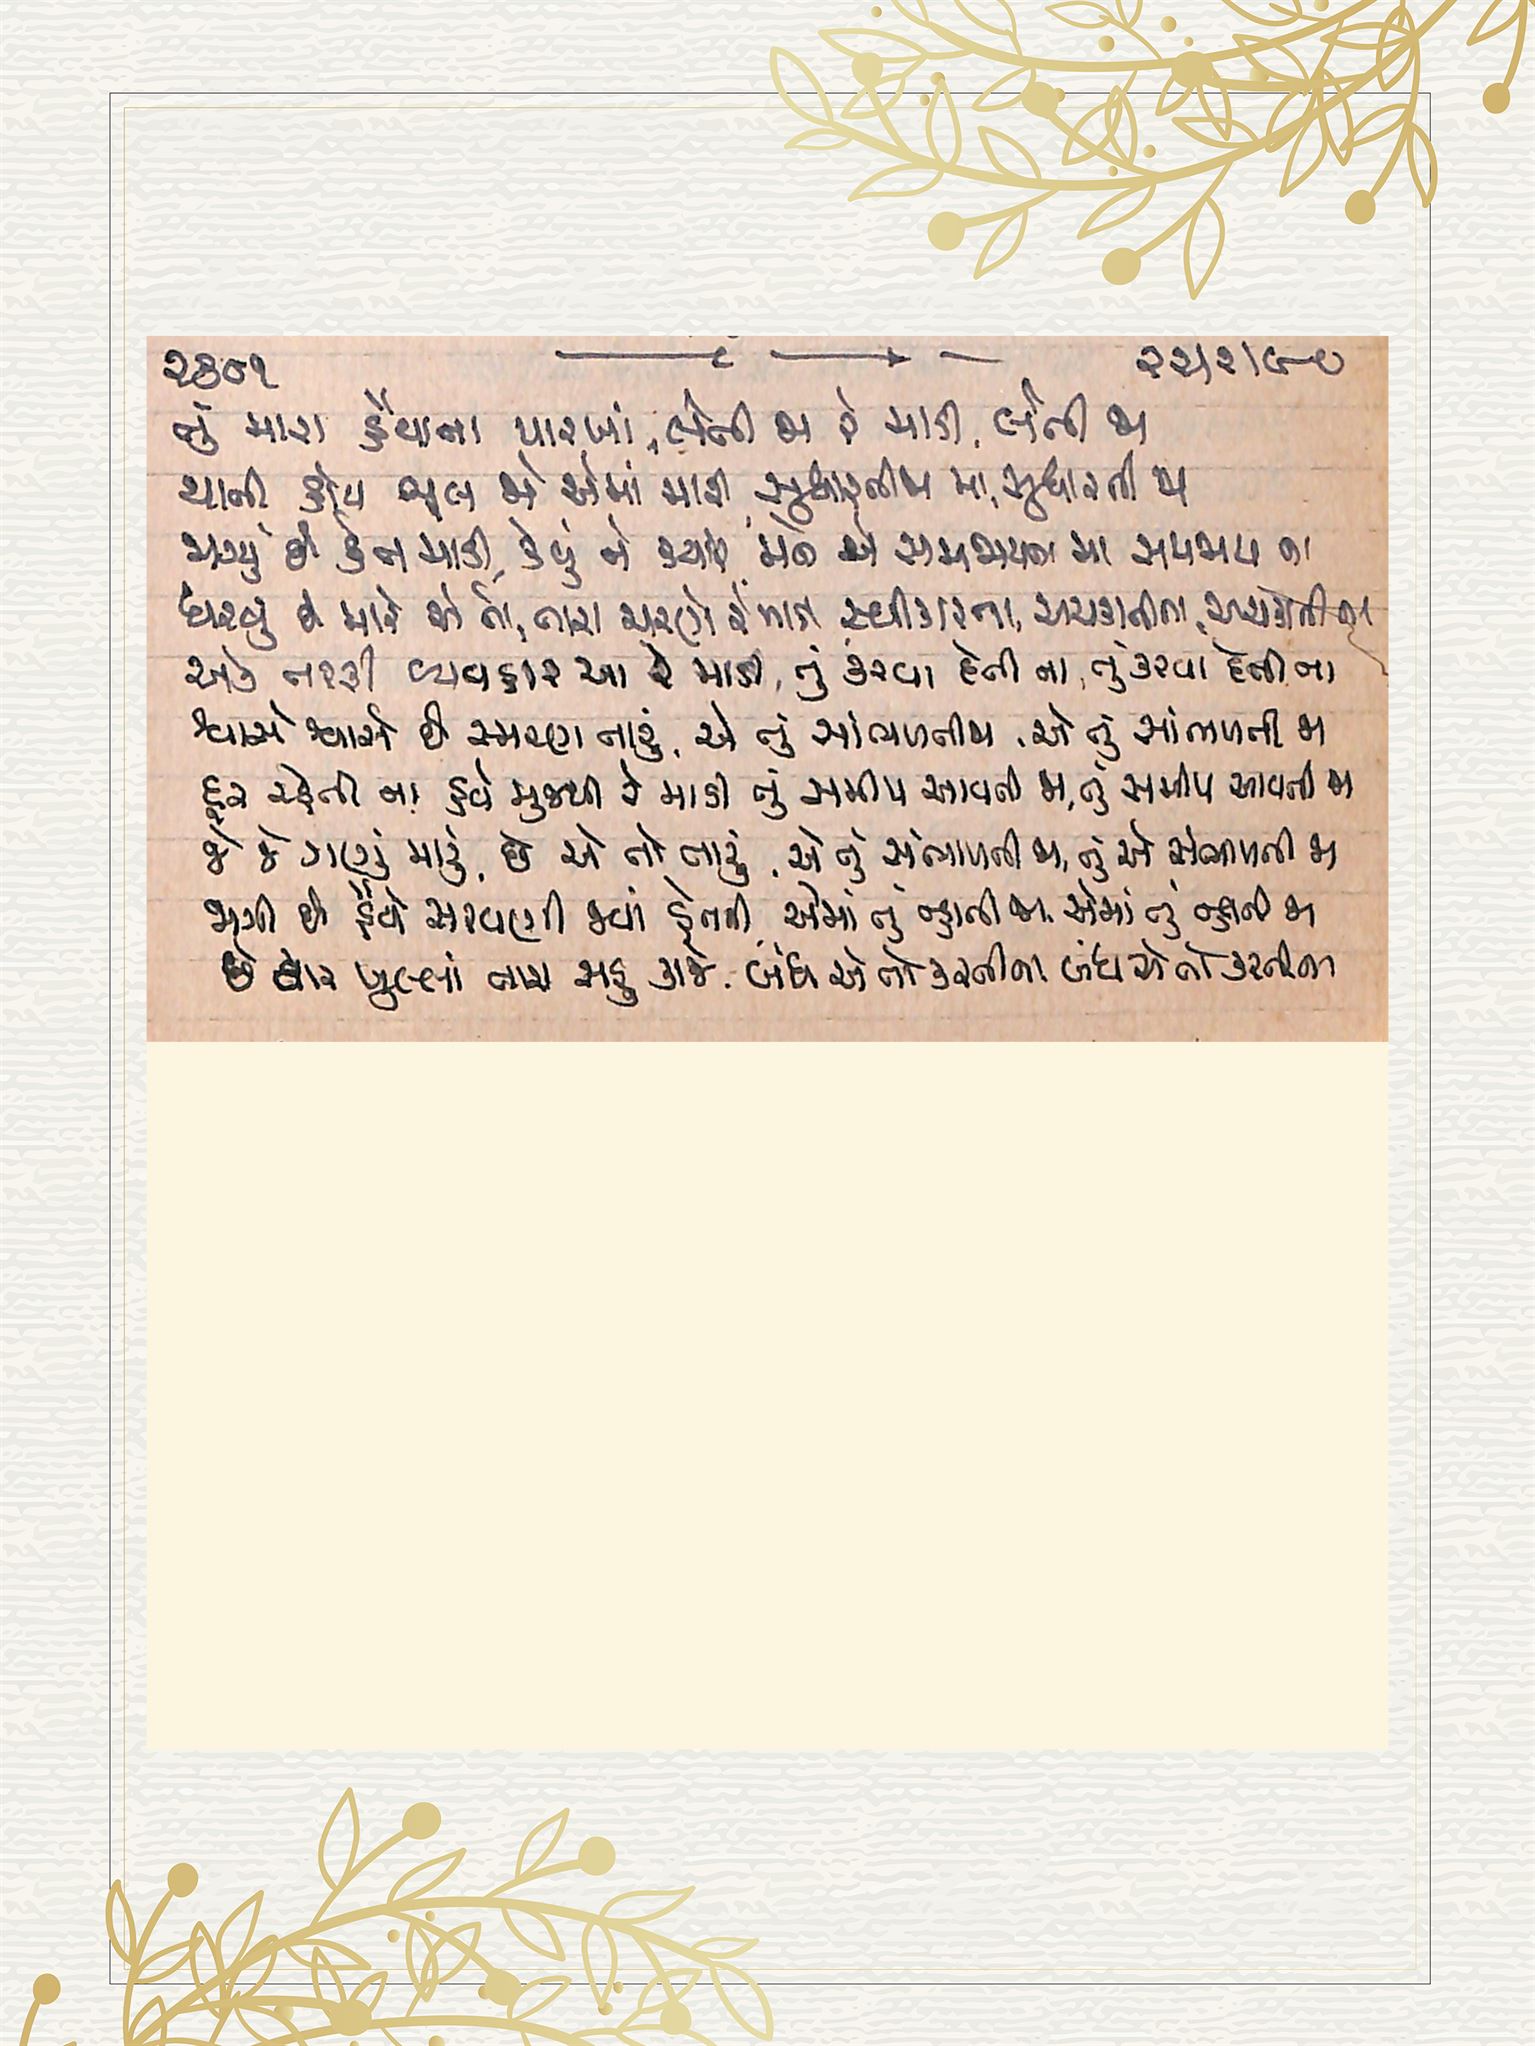 ૨૩૦૧ ૨૨/૨/૯૦
તું મારા હૈયાના પારખાં, લેતી જા રે માડી, લેતી જા
થાતી હોય ભૂલ જો એમાં મારી, સુધારતી જા મા, સુધારતી જા
મળ્યું છે કે ન માડી, કેવું ને ક્યારે, મને એ સમજાય ના મા સમજાય ના
ધરવું છે મારે જે તને, તારા ચરણે રે માડી સ્વીકારતા, અચકાતી ના, અચકાતી ના
એક તરફી વ્યવહાર આ રે માડી, તું કરવા દેતી ના, તું કરવા દેતી ના
શ્વાસે શ્વાસે છે સ્મરણ તારું, એ તું સાંભળતી જા, એ તું સાંભળતી જા
દૂર રહેતી ના હવે મુજથી રે માડી તું સમીપ આવતી જા, તું સમીપ આવતી જા
જે જે ગણું મારું, છે એ તો તારું, એ તું સંભાળતી જા, તું એ સંભાળતી જા
મળી છે હૈયે સરવાણી જ્યાં હેતની, એમાં તું ન્હાતી જા, એમાં તું ન્હાતી જા
છે દ્વાર ખુલ્લાં તારા સહુ કાજે, બંધ એ તો કરતી ના, બંધ એ તો કરતી ના